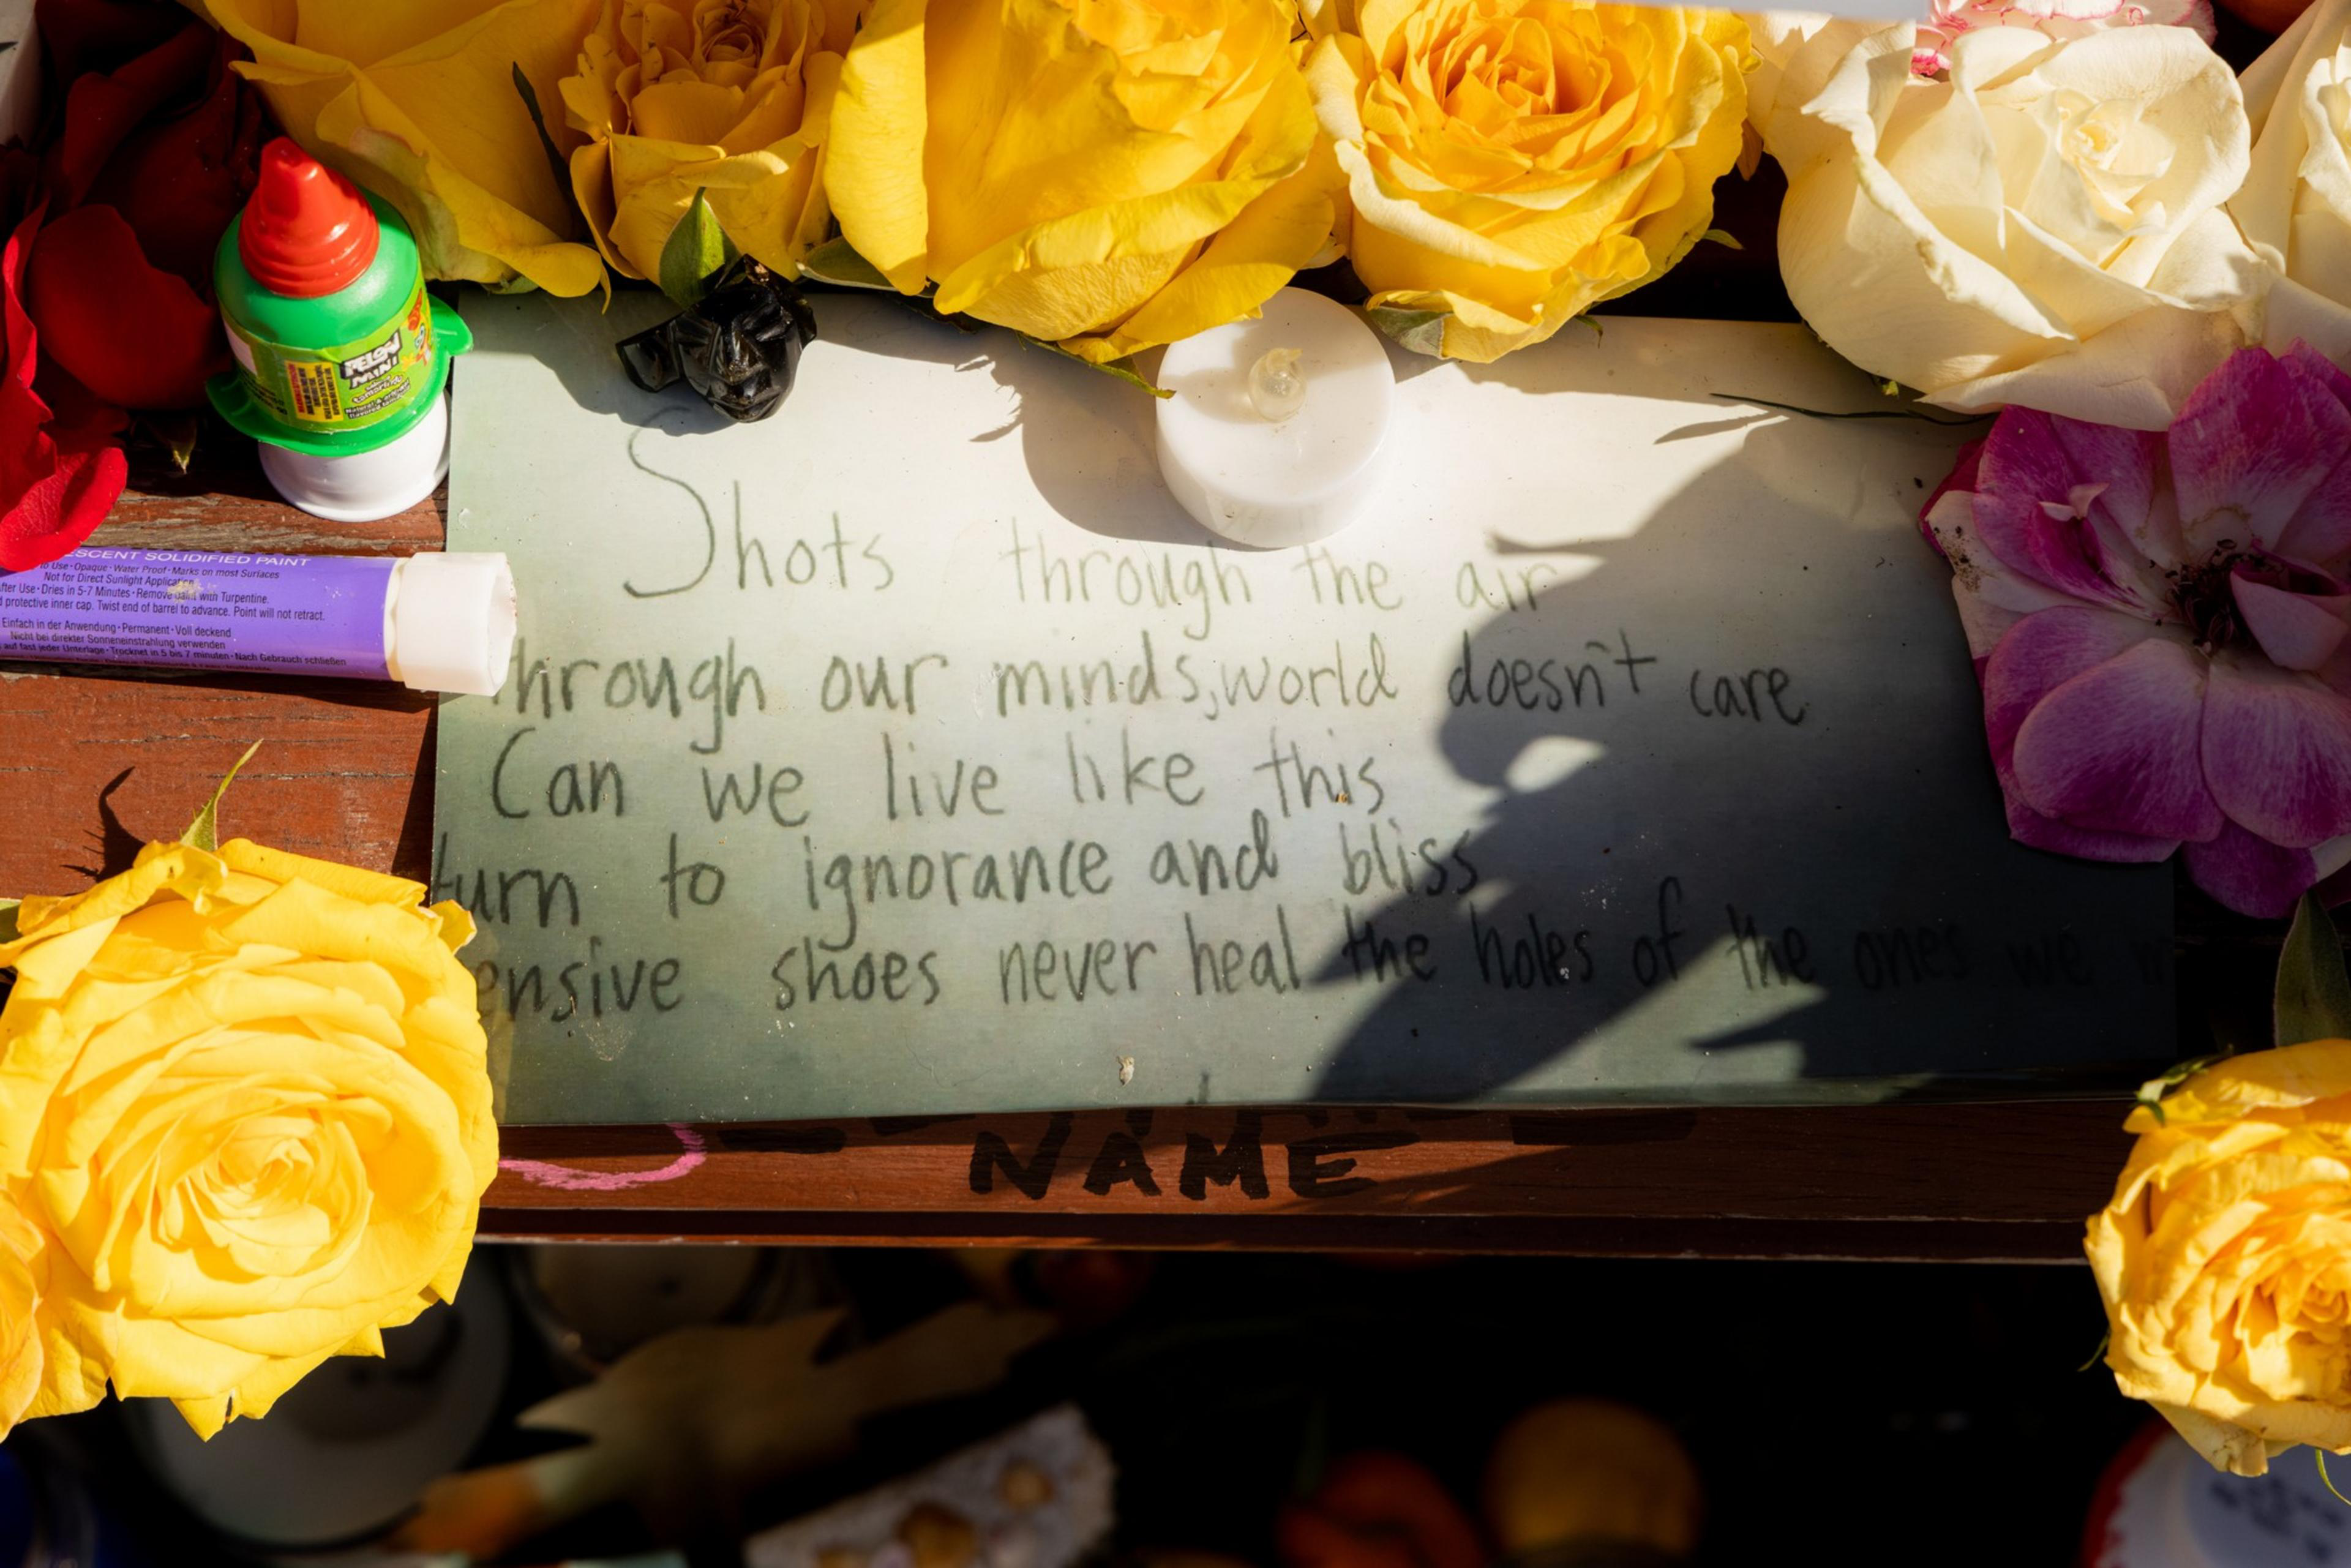 PELON
MINI
ESCENT SOLIDIFIED PAINT
to Use · Opaque · Water Proof · Marks on most Surfaces
Not for Direct Sunlight Application
fter Use · Dries in 5-7 Minutes · Remove paint with Turpentine.
protective inner cap. Twist end of barrel to advance. Point will not retract.
Einfach in der Anwendung · Permanent · Voll deckend
Nicht bei direkter Sonneneinstrahlung verwenden
auf fast jeder Unterlage · Trocknet in 5 bis 7 minuten · Nach Gebrauch schließen
Shots through the air
through our minds, world doesn't care
Can we live like this
turn to ignorance and bliss
ensive shoes never heal the holes of the ones we w
NAME